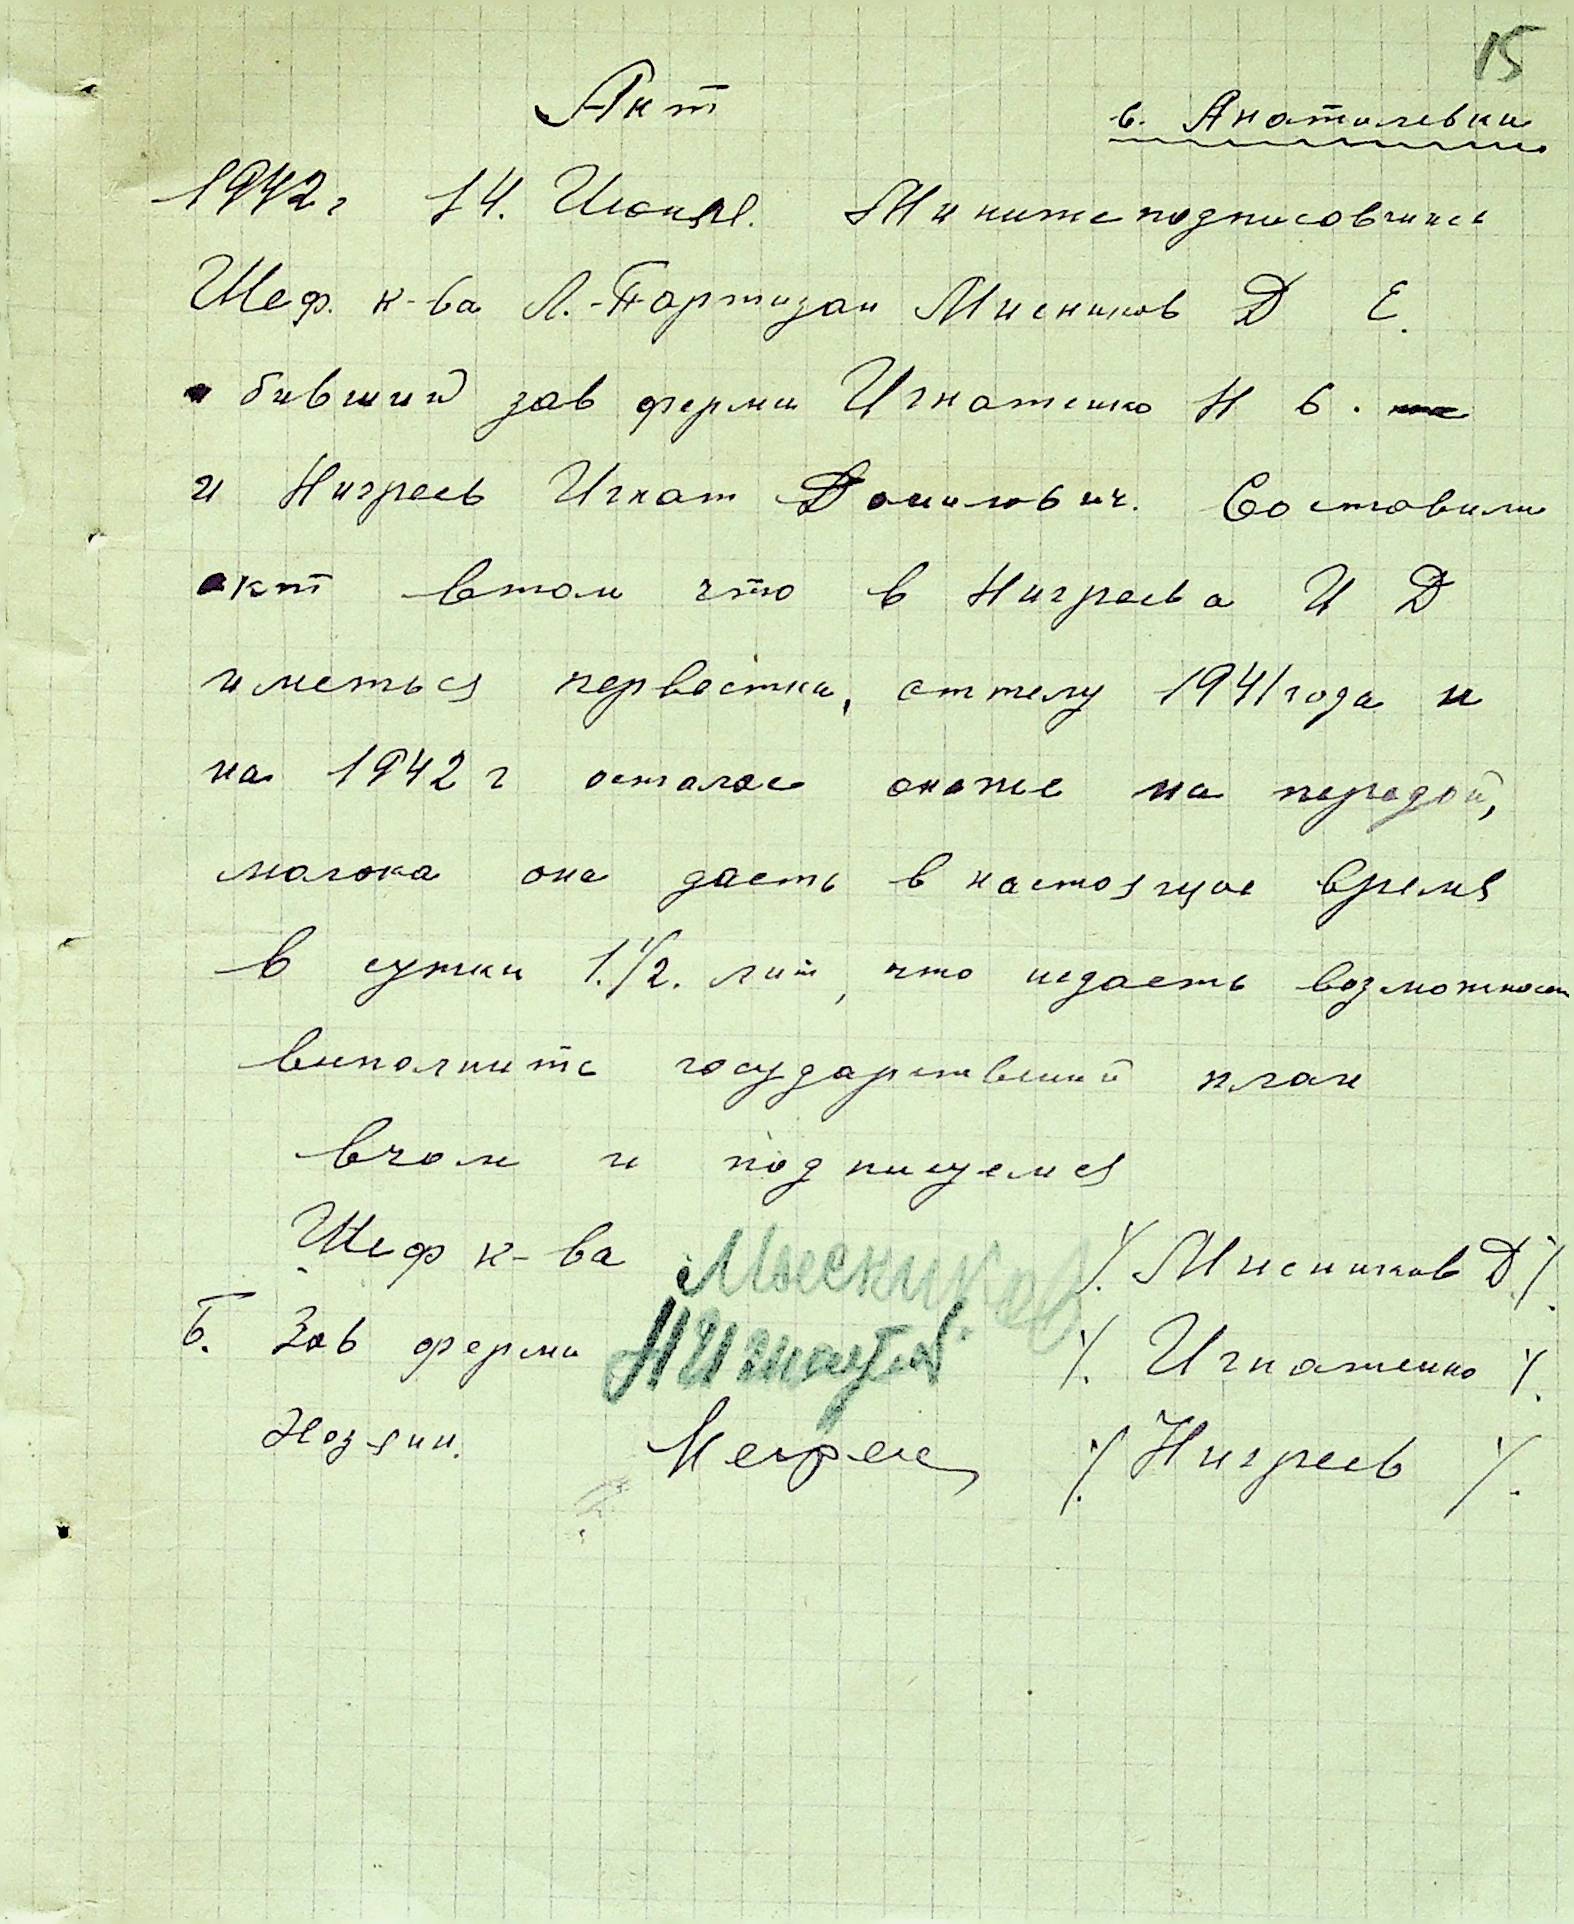 15
Акт
с. Анатолевки
1942 г 14. Июня. Ми нижеподписовшиес
Шеф. к-ва Л.-Партизан Мисников Д Е.
бивший зав ферми Игнатенко Н В.
и Нигреев Игнат Данилович. Составили
акт втом что в Нигреева И Д
иметься первестка, оттелу 1941 года и
на 1942 г осталас онаже на передой,
молока она даеть в настоящое время
в сутки 1.1/2. лит, что недаеть возможност
виполнить государственний план
вчом и подписуемся
Шеф к-ва Мыскиков /. Мисников Д /.
Б. Зав ферми /. Игнатенко /.
Хозяин. /. Нигреев /.